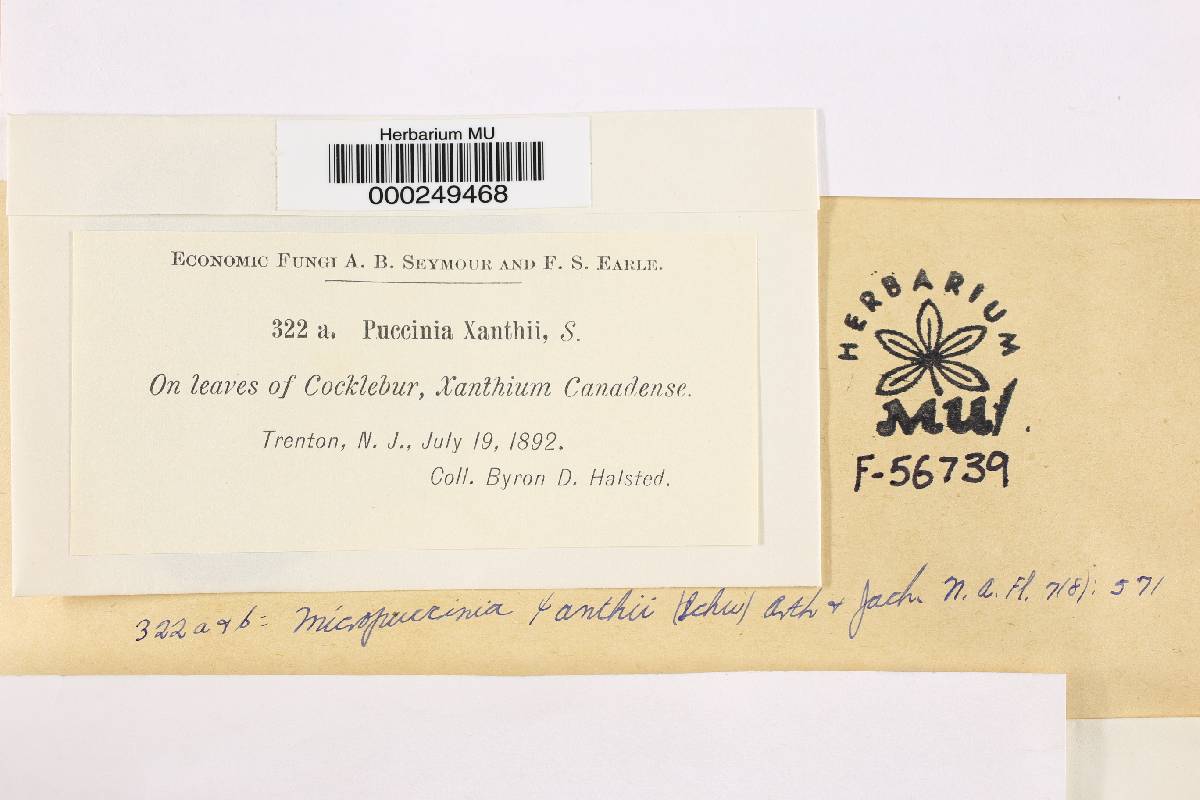 Herbarium MU
000249468
ECONOMIC FUNGI A. B. SEYMOUR AND F. S. EARLE.
322 a. Puccinia Xanthii, S.
On leaves of Cocklebur, Xanthium Canadense.
Trenton, N. J., July 19, 1892.
Coll. Byron D. Halsted.
HERBARIUM
MU
F-56739
322 a & b = Micropuccinia Xanthii (Schw) Arth & Jack. N. A. Fl. 7(8): 571